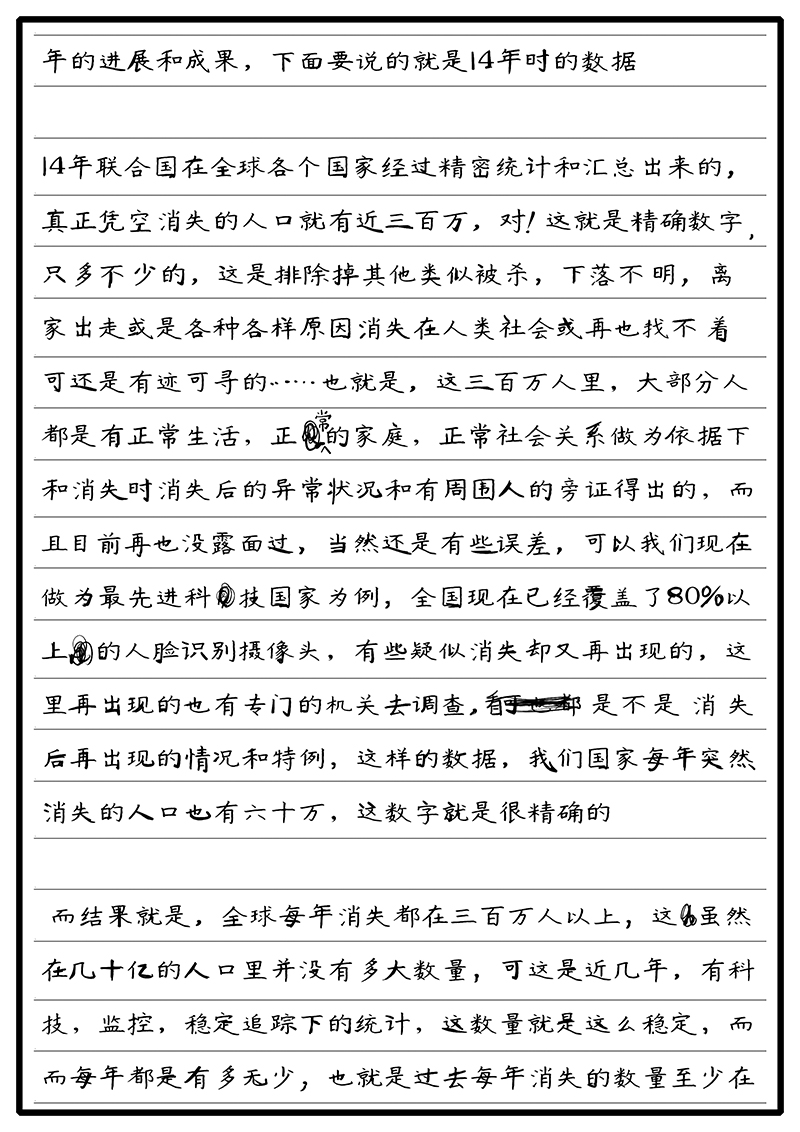 年的进展和成果，下面要说的就是14年时的数据
14年联合国在全球各个国家经过精密统计和汇总出来的，
真正凭空消失的人口就有近三百万，对！这就是精确数字，
只多不少的，这是排除掉其他类似被杀，下落不明，离
家出走或是各种各样原因消失在人类社会或再也找不着
可还是有迹可寻的……也就是，这三百万人里，大部分人
都是有正常生活，正常的家庭，正常社会关系做为依据下
和消失时消失后的异常状况和有周围人的旁证得出的，而
且目前再也没露面过，当然还是有些误差，可以我们现在
做为最先进科技国家为例，全国现在已经覆盖了80%以
上的人脸识别摄像头，有些疑似消失却又再出现的，这
里再出现的也有专门的机关去调查，看是不是消失
后再出现的情况和特例，这样的数据，我们国家每年突然
消失的人口也有六十万，这数字就是很精确的
而结果就是，全球每年消失都在三百万人以上，这虽然
在几十亿的人口里并没有多大数量，可这是近几年，有科
技，监控，稳定追踪下的统计，这数量就是这么稳定，而
而每年都是有多无少，也就是过去每年消失的数量至少在